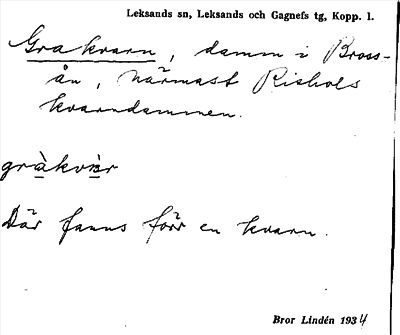 Leksands sn, Leksands och Gagnefs tg, Kopp. l.
Grakvarn, damm i Bross-
ån, närmast Rishols
kvarndammen.
Där fanns förr en kvarn.
Bror Lindén 1934